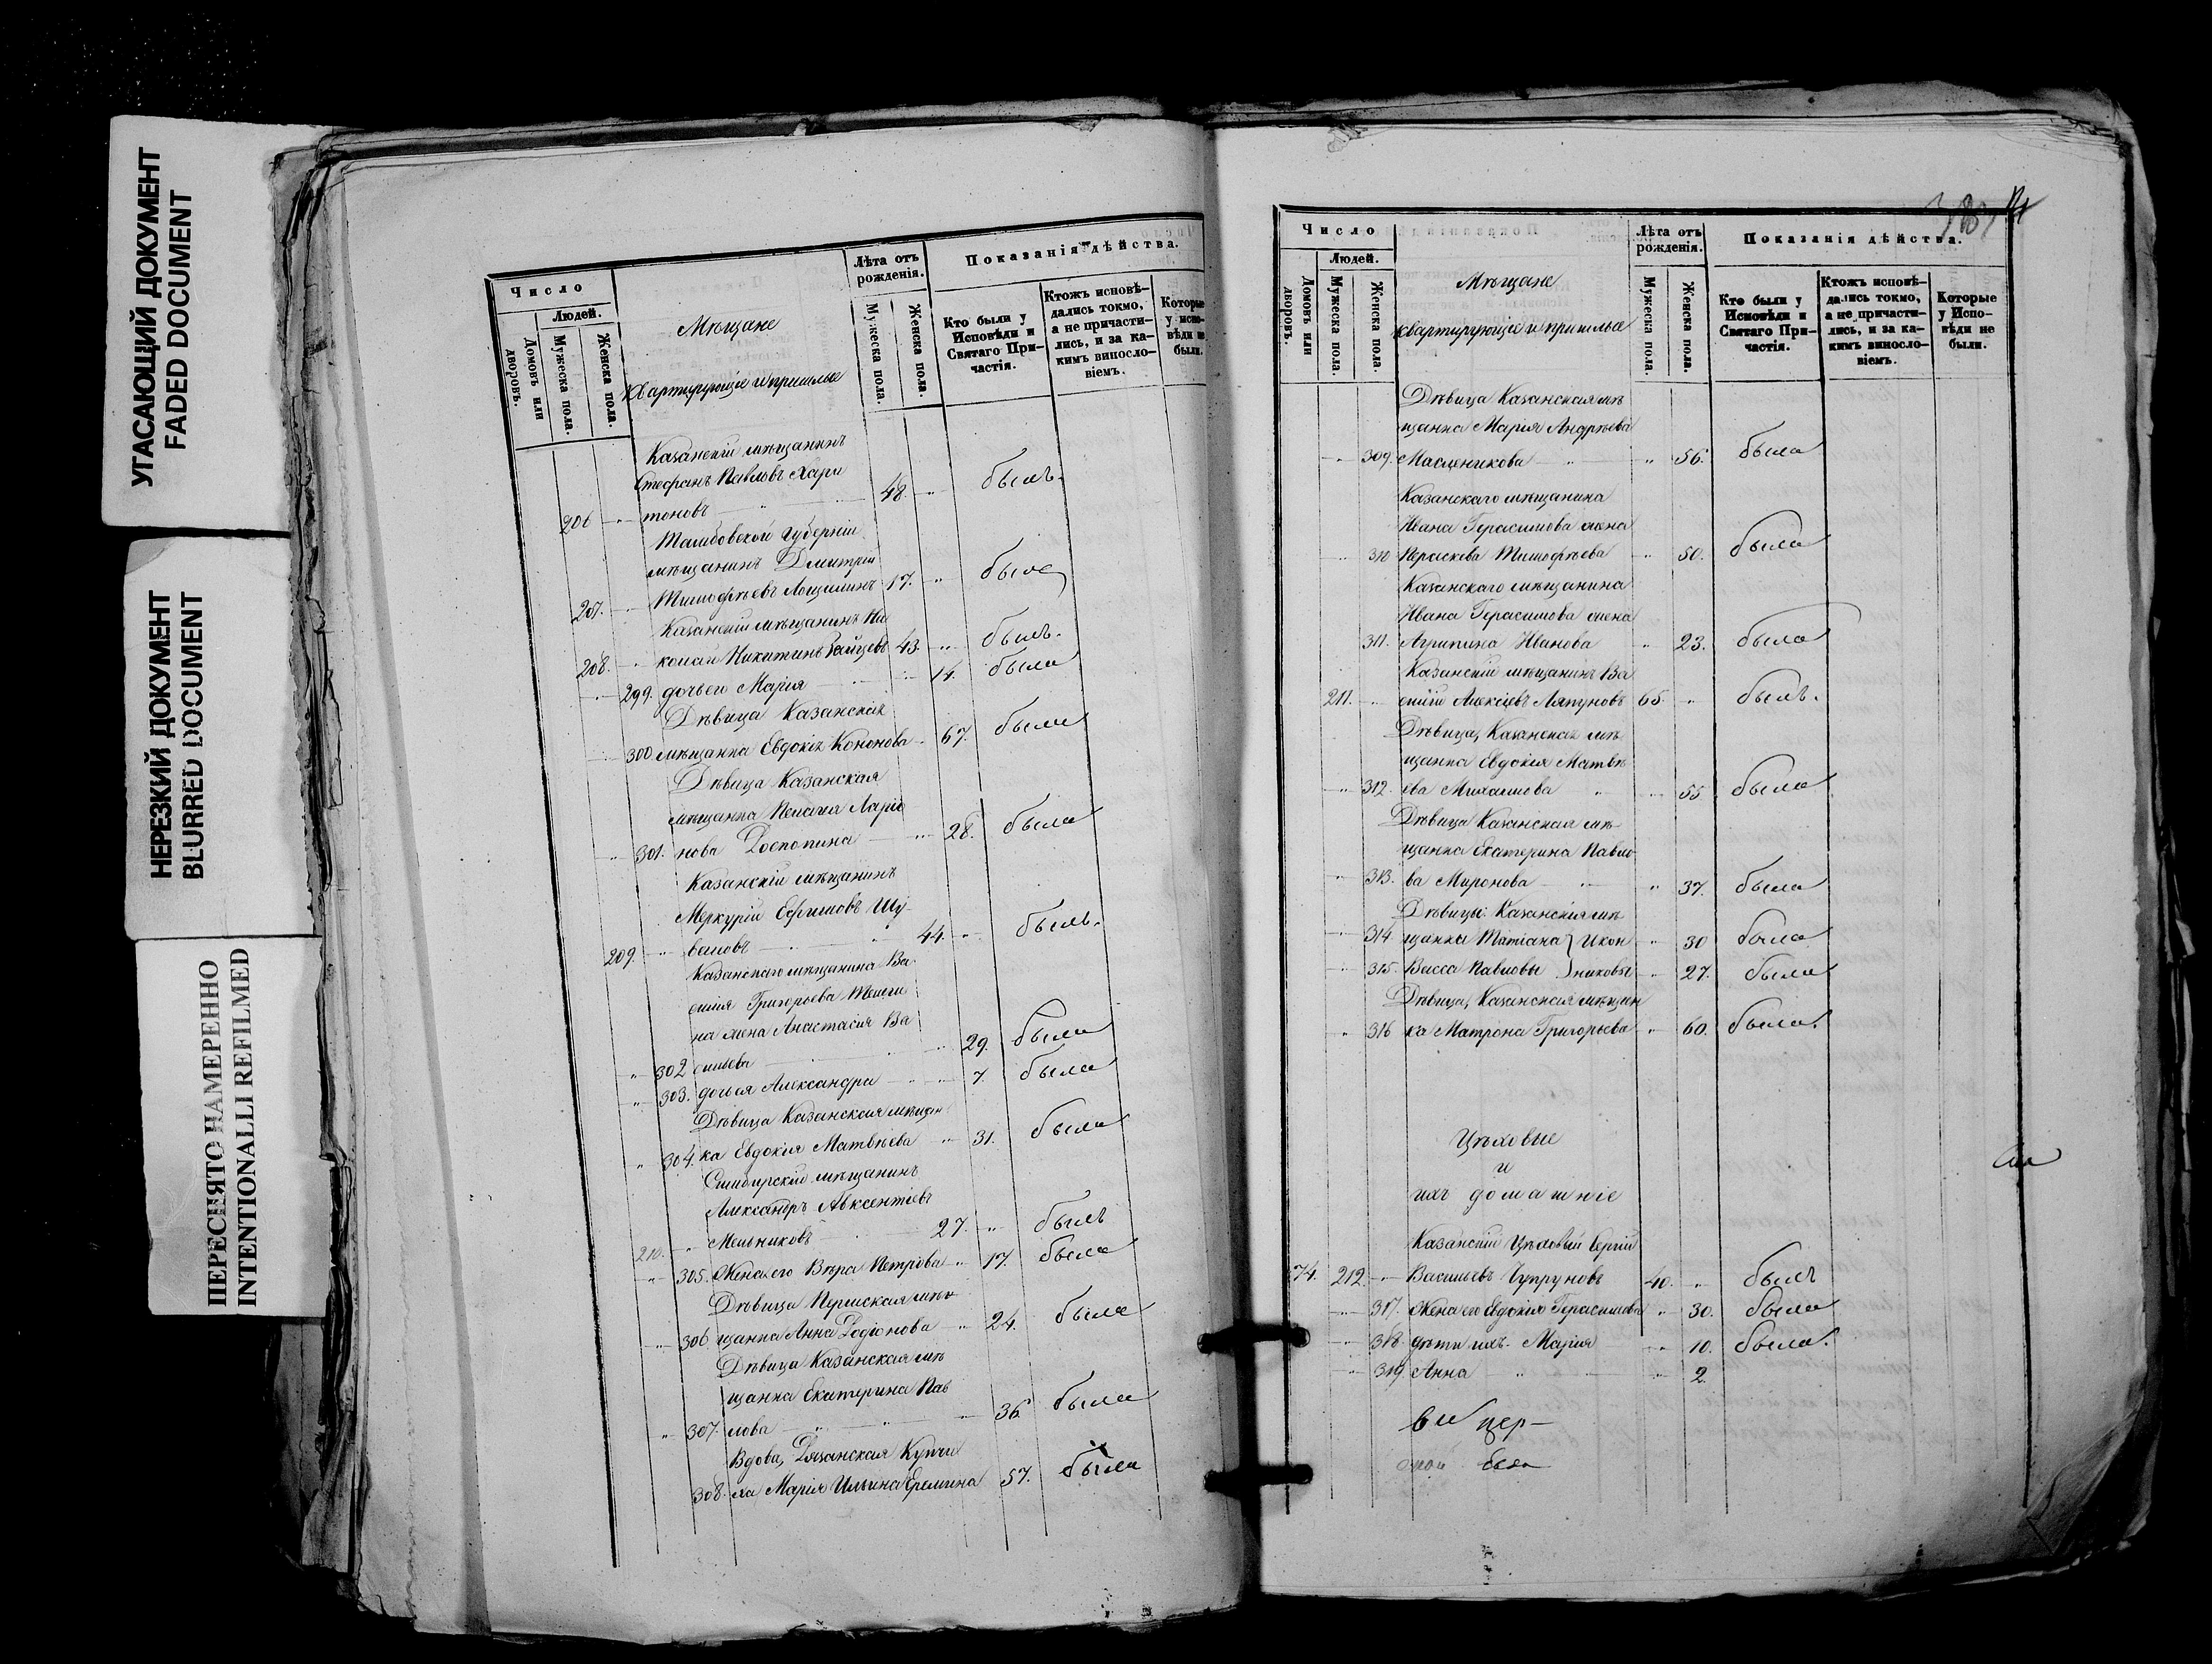 УГАСАЮЩИЙ ДОКУМЕНТ
FADED DOCUMENT
НЕРЕЗКИЙ ДОКУМЕНТ
BLURRED DOCUMENT
ПЕРЕСНЯТО НАМЕРЕННО
INTENTIONALLI REFILMED
Число
Людей.
Домовъ или дворовъ.
Мужеска пола.
Женска пола.
Мѣщане
Квартирующіе и пришлые
Лѣта отъ рожденія.
Мужеска пола.
Женска пола.
Показанія дѣйства.
Кто были у Исповѣди и Святаго Причастія.
Ктожъ исповѣ-
дались токмо,
а не причасти-
лись, и за ка-
кимъ винсло-
віемъ.
Которые
у испо-
вѣди не
были.
Казанскій мѣщанинъ
Стефанъ Павловъ Хари
206 тоновъ 48. былъ.
Тамбовской губерніи
мѣщанинъ Дмитрій
207. Тимофѣевъ 17. былъ
Казанскій мѣщанинъ Ни
208. колай Никитинъ Зайцевъ 43. былъ.
299. дочь его Марія 14. была
Дѣвица Казанская
300 мѣщанка Евдокія Кононова 67. была
Дѣвица Казанская
мѣщанка Пелагія Ларіо
301. нова 28. была
Казанскій мѣщанинъ
Меркурій Ефимовъ Шу-
209. валовъ 44. былъ.
Казанскаго мѣщанина Ва
силія Григорьева
на жена Анастасія Ва
302 сильева 29. была
303. дочь ея Александра 7. была
Дѣвица Казанская мѣщан
304. ка Евдокія Матвѣева 31. была
Симбирскій мѣщанинъ
Александръ Авксентіевъ
210. Мельниковъ 27. былъ
305. Жена его Вѣра Петрова 17. была
Дѣвица Пермская мѣ
306 щанка Анна Родіонова 24. была
Дѣвица Казанская мѣ
щанка Екатерина Пав
307. лова 36. была
Вдова, Казанская Купчи
308. ха Марія Ильина Еремина 57. была
Число
Людей.
Домовъ или дворовъ.
Мужеска пола.
Женска пола.
Мѣщане
квартирующіе и пришлые
Лѣта отъ рожденія.
Мужеска пола.
Женска пола.
Показанія дѣйства.
Кто были у Исповѣди и Святаго Причастія.
Ктожъ исповѣ-
дались токмо,
а не причасти-
лись, и за ка-
кимъ винсло-
віемъ.
Которые
у Испо-
вѣди не
были.
Дѣвица Казанская мѣ
щанка Марія Андрѣева
309. Масленикова 56. была
Казанскаго мѣщанина
Ивана Герасимова жена
310 Параскева Тимофѣева 50. была
Казанскаго мѣщанина
Ивана Герасимова жена
311. Агрипина Иванова 23. была
Казанскій мѣщанинъ Ва
211. силій Алексѣевъ Ляпуновъ 65. былъ.
Дѣвица, Казанская мѣ
щанка Евдокія Матвѣ
312. ева Михайлова 55 была
Дѣвица Казанская мѣ-
щанка Екатерина Павло
313. ва Миронова 37. была
Дѣвицы: Казанскія мѣ
314 щанки Татіана } Икон 30 была
315. Васса Павловы } никовы 27. была
Дѣвица, Казанская мѣщан
316 ка Матрона Григорьева 60. была.
Цѣховые
и
ихъ домашніе
Казанскій Цѣховый Сергій
74. 212. Васильевъ Чупруновъ 40. былъ
317. Жена его Евдокія Герасимова 30. была
318. дѣти ихъ. Марія 10. была.
319. Анна 2